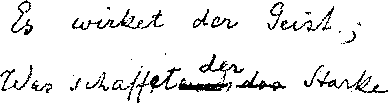 Es wirket der Geist.;
Was schaffet der Starke